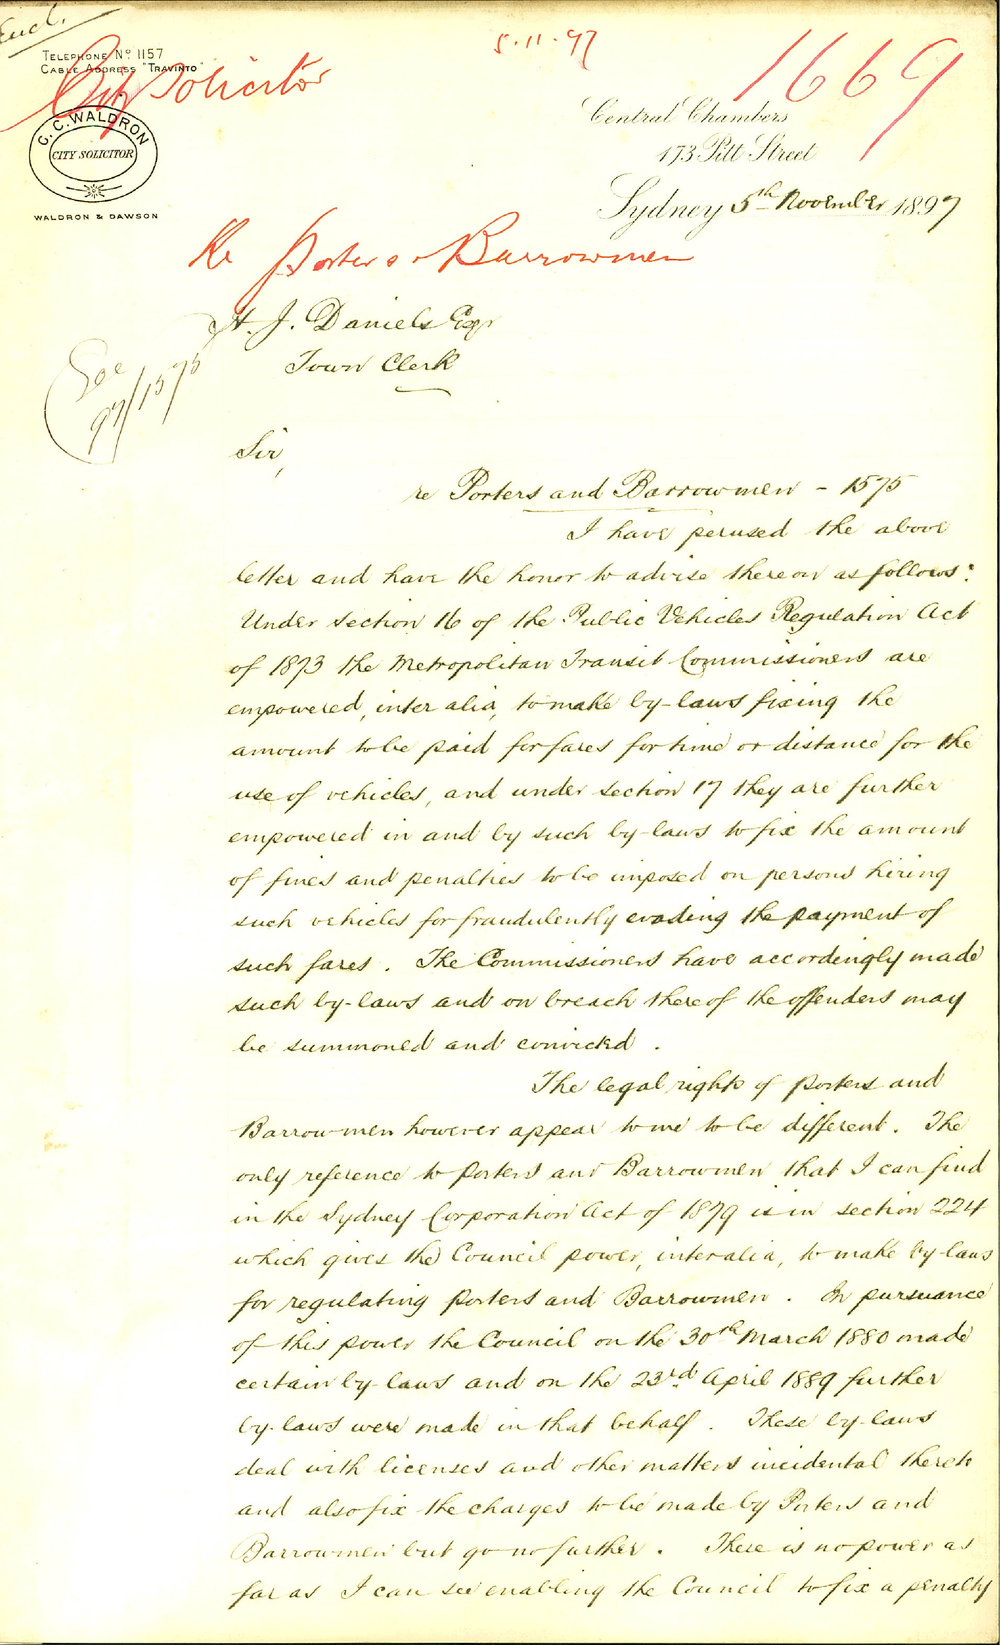 Encl.
5.11.97
1669
TELEPHONE No. 1157
CABLE ADDRESS "TRAVINTO"
City Solicitor
C. C. WALDRON
CITY SOLICITOR
WALDRON & DAWSON
Central Chambers
173 Pitt Street
Sydney 5th November 1897
Re Porters & Barrowmen
H. J. Daniels Esqr
Town Clerk
See
97/1575
Sir,
re Porters and Barrowmen - 1575
I have perused the above
letter and have the honor to advise thereon as follows:
Under section 16 of the Public Vehicles Regulation Act
of 1873 the Metropolitan Transit Commissioners are
empowered, inter alia, to make by-laws fixing the
amount to be paid for fares for time or distance for the
use of vehicles, and under section 17 they are further
empowered in and by such by-laws to fix the amount
of fines and penalties to be imposed on persons hiring
such vehicles for fraudulently evading the payment of
such fares. The Commissioners have accordingly made
such by-laws and on breach thereof the offenders may
be summoned and convicted.
The legal rights of porters and
Barrowmen however appear to me to be different. The
only reference to Porters and Barrowmen that I can find
in the Sydney Corporation Act of 1879 is in section 224
which gives the Council power, inter alia, to make by-laws
for regulating porters and Barrowmen. In pursuance
of this power the Council on the 30th March 1880 made
certain by-laws and on the 23rd April 1889 further
by-laws were made in that behalf. These by-laws
deal with licenses and other matters incidental thereto
and also fix the charges to be made by Porters and
Barrowmen but go no further. There is no power as
far as I can see enabling the Council to fix a penalty